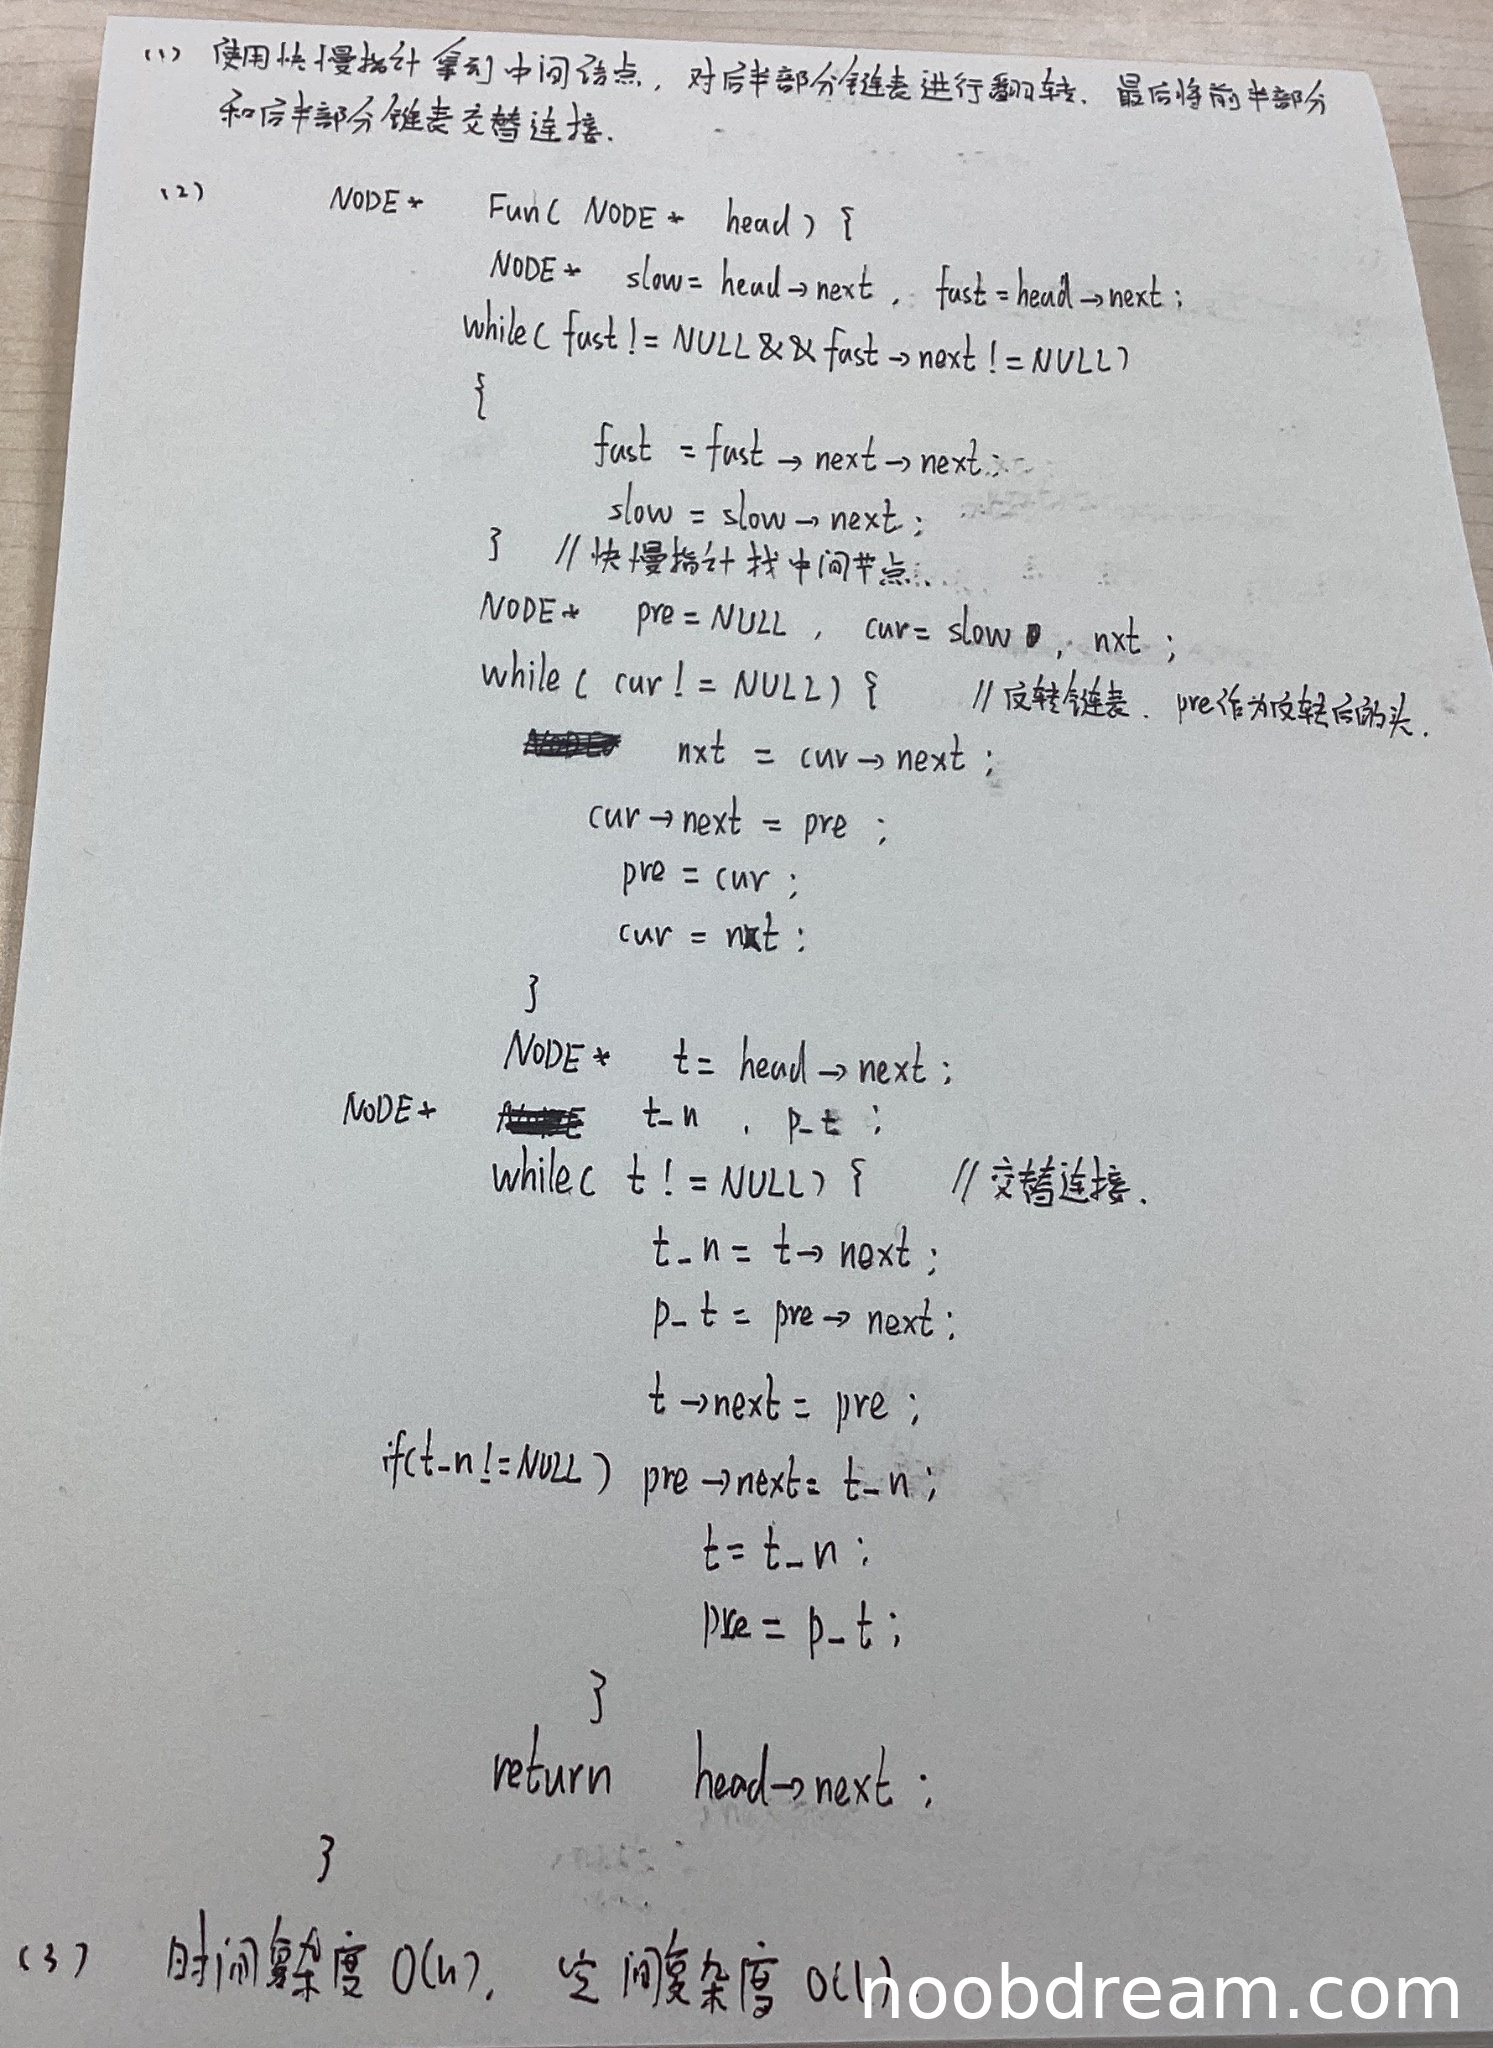 (1) 使用快慢指针拿到中间结点，对后半部分链表进行翻转．最后将前半部分
和后半部分链表交替连接．
(2) NODE* Fun( NODE* head) {
NODE* slow= head→next , fast=head→next;
while( fast!= NULL && fast→next!=NULL)
{
fast = fast→next→next;
slow = slow→next;
} //快慢指针找中间节点.
NODE* pre=NULL , cur= slow , nxt ;
while( cur!= NULL) { //反转链表．pre作为反转后的头．
nxt = cur→next ;
cur→next = pre ;
pre = cur ;
cur = nxt ;
}
NODE* t= head→next ;
NODE* t_n , p_t ;
while( t != NULL) { //交替连接．
t_n = t→next ;
p_t = pre→next ;
t→next= pre ;
if(t_n!=NULL) pre→next= t_n ;
t= t_n ;
pre= p_t ;
}
return head→next ;
}
(3) 时间复杂度 O(n)，空间复杂度 O(1).
noobdream.com